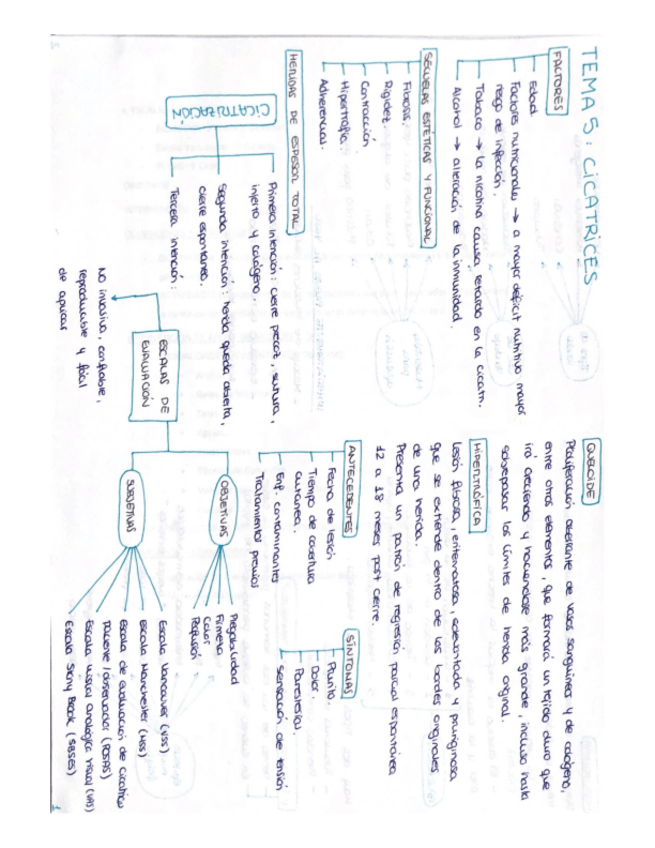 TEMA 5: CICATRICES
FACTORES
Edad
Factores nutricionales → a mayor déficit nutritivo mayor
riesgo de infección.
Tabaco → la nicotina causa retardo en la cicatri.
Alcohol → alteración de la inmunidad.
SECUELAS ESTÉTICAS Y FUNCIONAL
Fibrosis.
Rigidez.
Contracción
Hipertrofia.
Adherencias.
HERIDAS DE ESPESOR TOTAL
CICATRIZACIÓN
Primera intención: cierre precoz, sutura,
injerto y colágeno.
Segunda intención: herida queda abierta,
cierre espontáneo.
Tercera intención:
ESCALAS DE
EVALUACIÓN
No invasiva, confiable,
reproducible y fácil
de aplicar
QUELOIDE
Proliferación aberrante de vasos sanguíneos y de colágeno,
entre otros elementos, que formará un tejido duro que
irá creciendo y haciendose más grande, incluso hasta
sobrepasar los límites de herida original.
HIPERTRÓFICA
Lesión fibrosa, eritematosa, sobrevantada y pruriginosa
que se extiende dentro de los bordes originales
de una herida.
Presenta un patrón de regresión parcial espontánea
12 a 18 meses post cierre.
ANTECEDENTES
Fecha de lesión
Tiempo de cobertura
cutánea.
Enf. contaminantes
Tratamientos previos
SÍNTOMAS
Prurito
Dolor.
Parestesias.
Sensación de tensión
OBJETIVAS
Plegabilidad
Firmeza
Color
Perfusión
SUBJETIVAS
Escala Vancouver (VSS)
Escala Manchester (MSS)
Escala de evaluación de cicatriz
paciente/observador (POSAS)
Escala visual analógica visual (VAS)
Escala Stony Brook (SBSES)